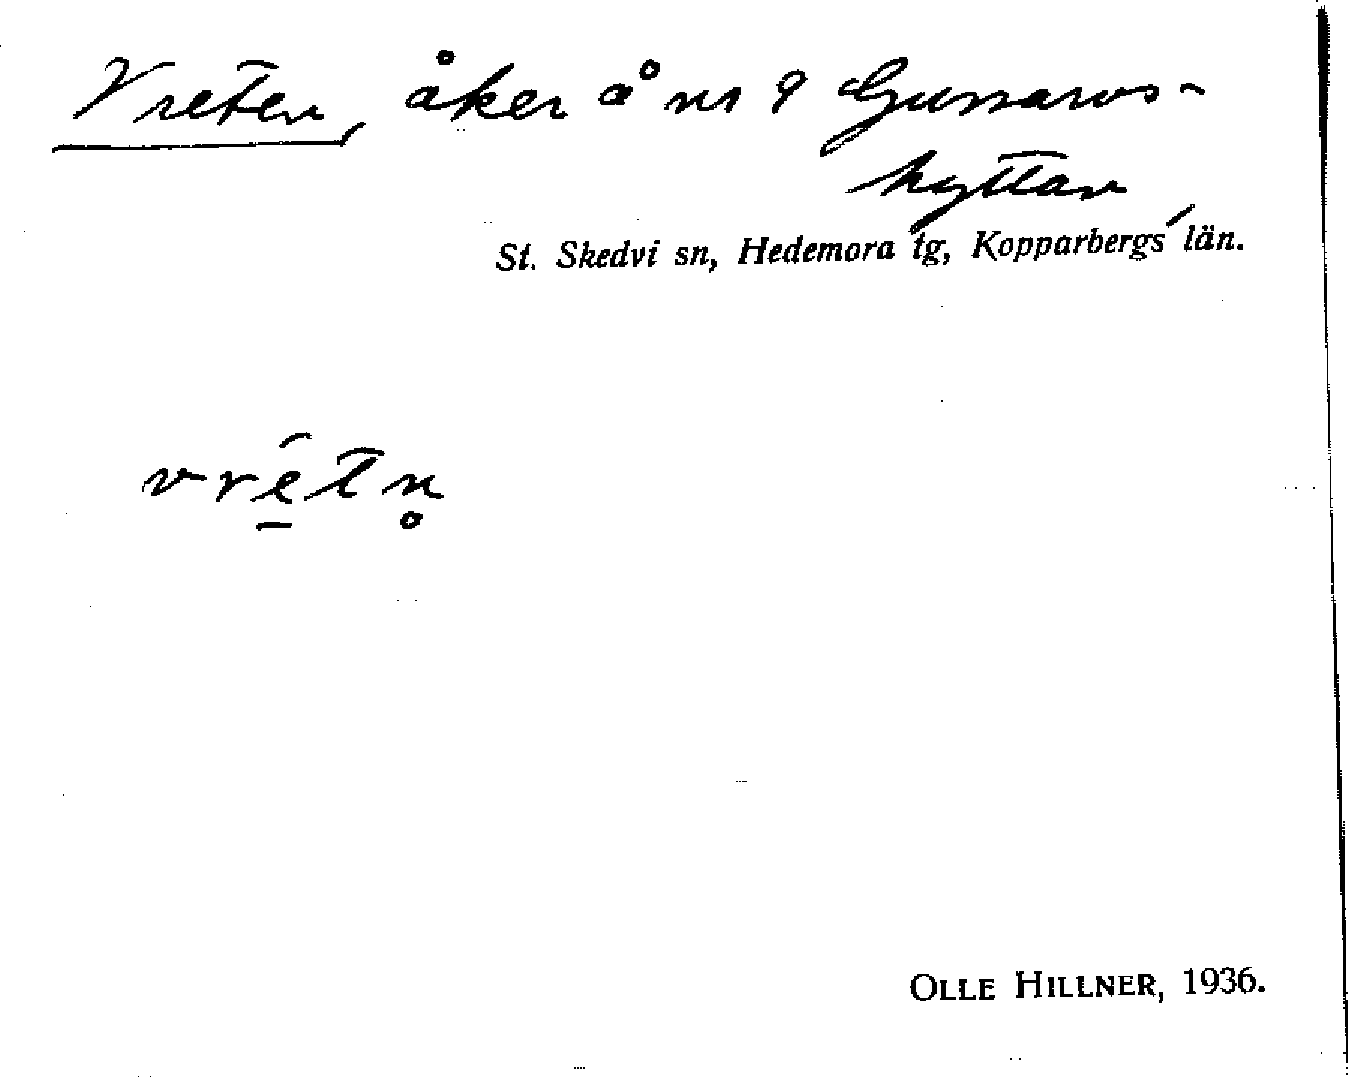 Vreten, åker å nr 9 Gussarvs-
hyttan
St. Skedvi sn, Hedemora tg, Kopparbergs län.
vrétn̥
OLLE HILLNER, 1936.